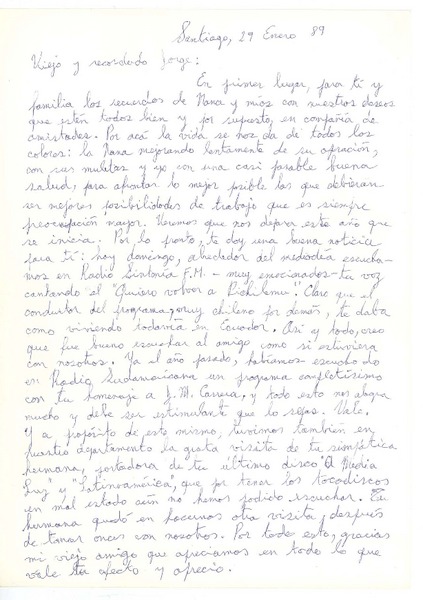 Santiago, 29 Enero 89
Viejo y recordado Jorge:
En primer lugar, para ti y
familia los recuerdos de Nana y míos con nuestros deseos
que estén todos bien y por supuesto, en compañía de
amistades. Por acá la vida se nos da de todos los
colores: la Nana mejorando lentamente de su operación,
con sus muletas y yo con una casi pasable buena
salud, para afrontar lo mejor posible las que debieran
ser mejores posibilidades de trabajo que es siempre
preocupación mayor. Veremos que nos depara este año que
se inicia. Por lo pronto, te doy una buena noticia
para ti: hoy domingo, alrededor del mediodía escucha-
mos en Radio Sintonía F.M. - muy emocionados - tu voz
cantando el "Quiero volver a Pichilemu". Claro que el
conductor del programa, muy chileno por demás, te daba
como viviendo todavía en Ecuador. Así y todo, creo
que fue bueno escuchar al amigo como si estuviera
con nosotros. Ya el año pasado, habíamos escuchado
en Radio Sudamericana un programa completísimo
con tu homenaje a J. M. Carrera, y todo esto nos alegra
mucho y debe ser estimulante que lo sepas. Vale.
Y a propósito de este mismo, tuvimos también en
nuestro departamento la grata visita de tu simpática
hermana, portadora de tu último disco "A Media
Luz" y "Latinoamérica", que por tener los tocadiscos
en mal estado aún no hemos podido escuchar. Tu
hermana quedó en hacernos otra visita, después
de tomar onces con nosotros. Por todo esto, gracias
mi viejo amigo que apreciamos en todo lo que
vale tu afecto y aprecio.